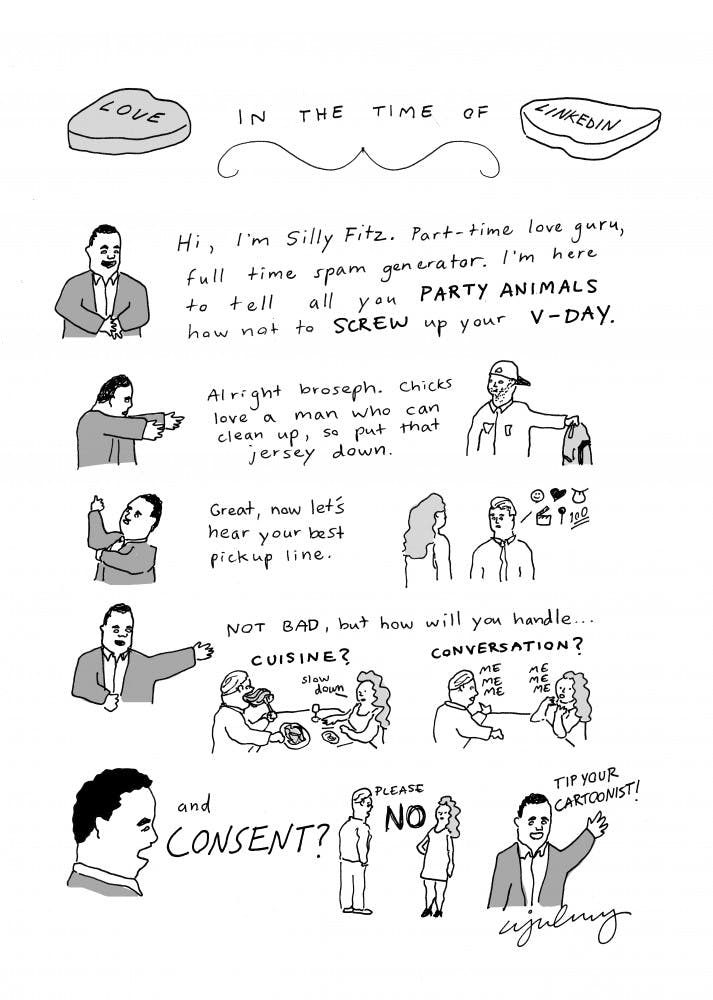 LOVE IN THE TIME OF LINKEDIN
Hi, I'm Silly Fitz. Part-time love guru,
full time spam generator. I'm here
to tell all you PARTY ANIMALS
how not to SCREW up your V-DAY.
Alright broseph. Chicks
love a man who can
clean up, so put that
jersey down.
Great, now let's
hear your best
pickup line.
100
NOT BAD, but how will you handle...
CUISINE?
slow
down
CONVERSATION?
ME
ME
ME
ME
ME
ME
and
CONSENT?
PLEASE
NO
TIP YOUR
CARTOONIST!